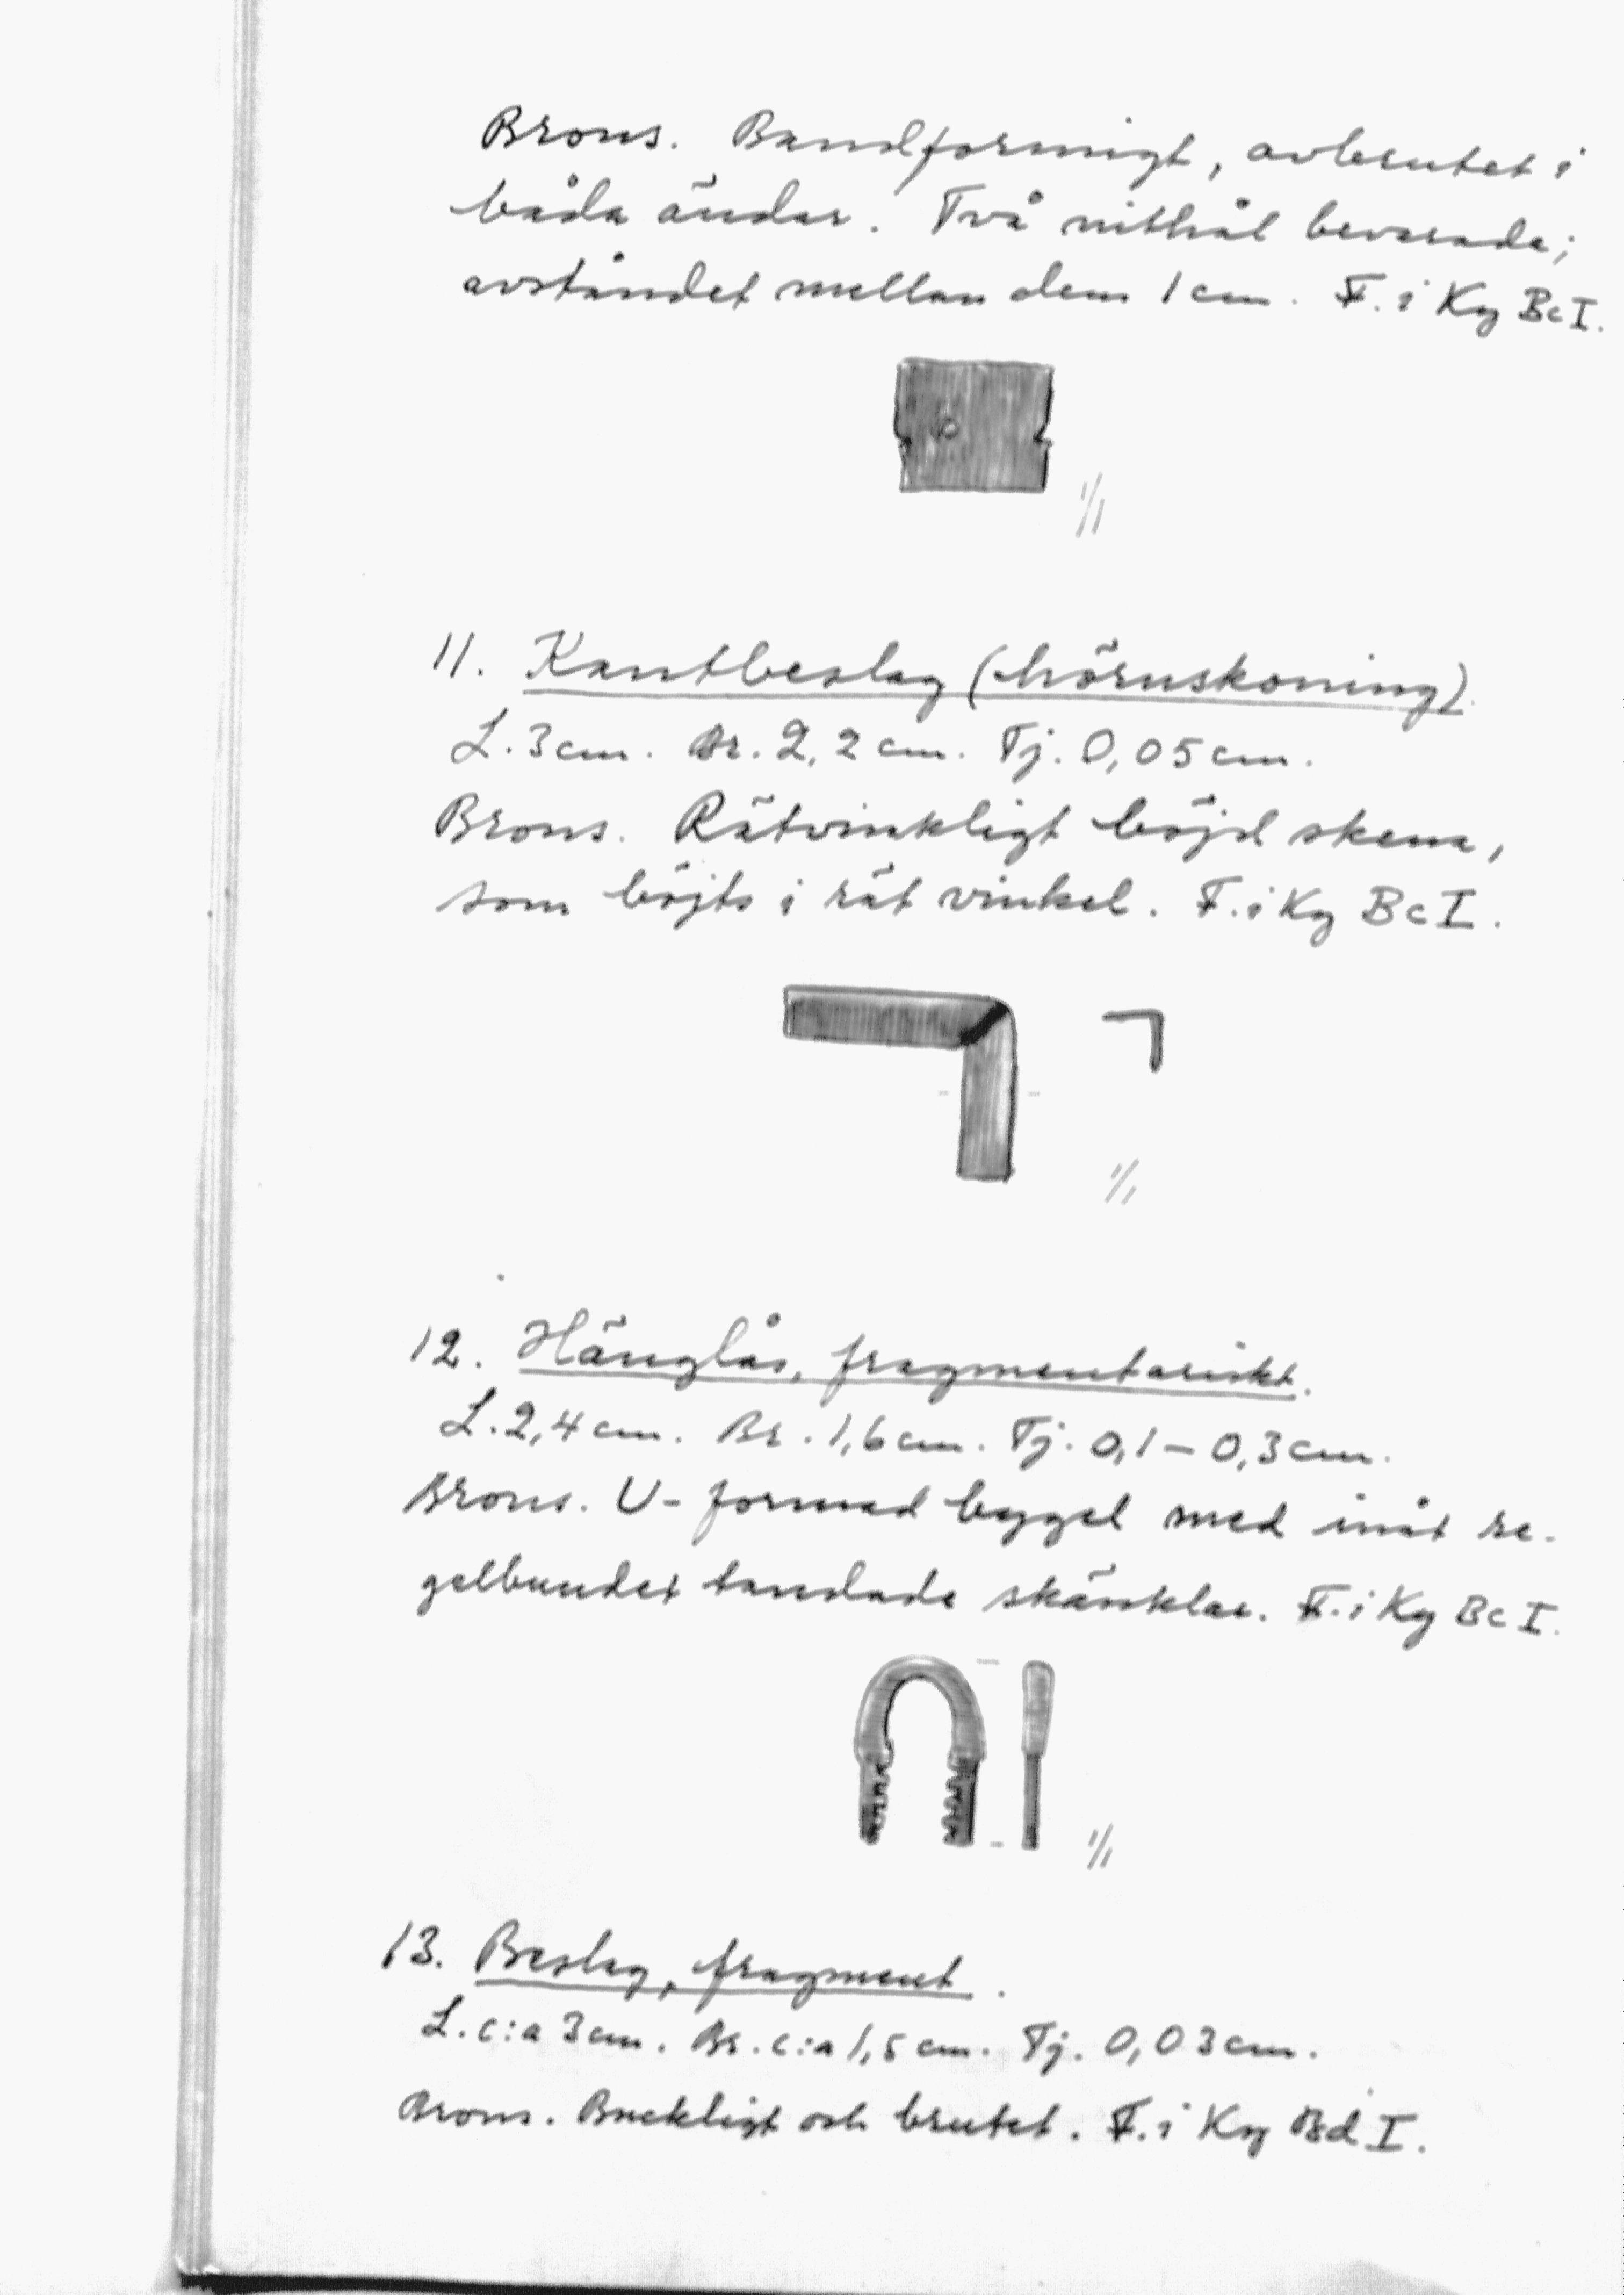 Brons. Bandformigt, avbrutet i
båda ändar. Två nithål bevarade;
avståndet mellan dem 1 cm. F. i Kg Bc I.
1/1
11. Kantbeslag (hörnskoning).
L. 3 cm. Br. 2,2 cm. Tj. 0,05 cm.
Brons. Rätvinkligt böjd skena,
som böjts i rät vinkel. F. i Kg Bc I.
1/1
12. Hänglås, fragmentariskt.
L. 2,4 cm. Br. 1,6 cm. Tj. 0,1 – 0,3 cm.
Brons. U-formad bygel med inåt re-
gelbundet tandade skänklar. F. i Kg Bc I.
1/1
13. Beslag, fragment.
L. c:a 3 cm. Br. c:a 1,5 cm. Tj. 0,03 cm.
Brons. Buckligt och brutet. F. i Kg Bd I.